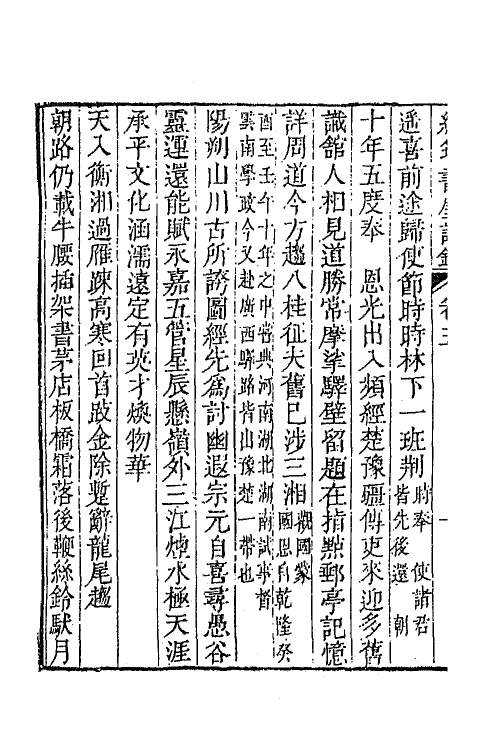 遥喜前途歸使節時時林下一班荆時奉使諸君皆先後還朝
十年五度奉　恩光出入頻經楚豫疆傳吏來迎多舊
識舘人相見道勝常摩挲驛壁留題在指㸃郵亭記憶
詳周道今方趨八桂征夫舊已涉三湘觀國蒙國恩自乾隆癸
酉至壬午十年之中嘗典河南湖北湖南試事督
雲南學政今又赴廣西驛路皆由豫楚一帶也
陽朔山川古所誇圖經先爲討幽遐宗元自喜尋愚谷
靈運還能賦永嘉五管星辰懸嶺外三江煙水極天涯
承平文化涵濡遠定有英才煥物華
天入衡湘過雁踈高寒回首跂金除蹔辭龍尾趨
朝路仍載牛腰插架書茅店板橋霜落後鞭絲鈴馱月